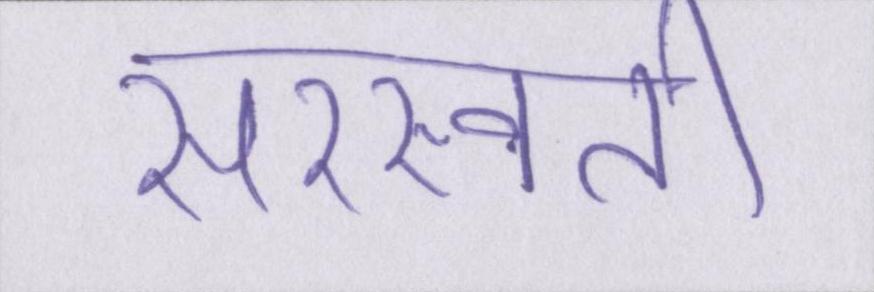 सरस्वती